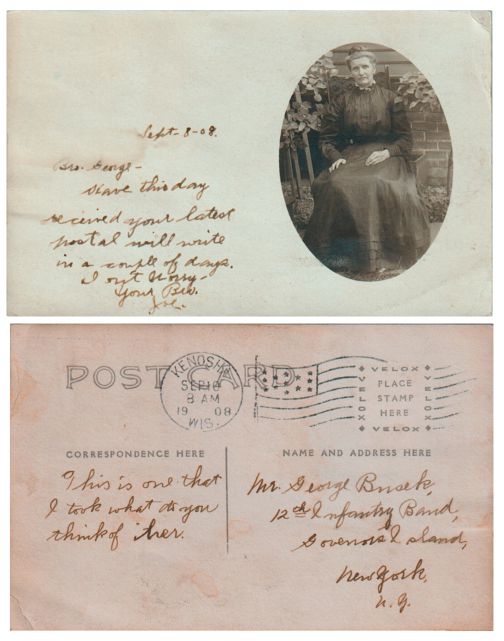 Sept- 8-08.
Bro. George-
Have this day
received your latest
postal will write
in a couple of days.
Dont Worry-
Your Bro.
Joe.
POST CARD
KENOSHA
SEP 10
8 AM
1908
WIS.
VELOX
PLACE
STAMP
HERE
VELOX
VELOX
VELOX
CORRESPONDENCE HERE
NAME AND ADDRESS HERE
This is one that
I took what do you
think of her.
Mr. George Busek,
12th Infantry Band,
Govenors Island,
New York,
N.Y.